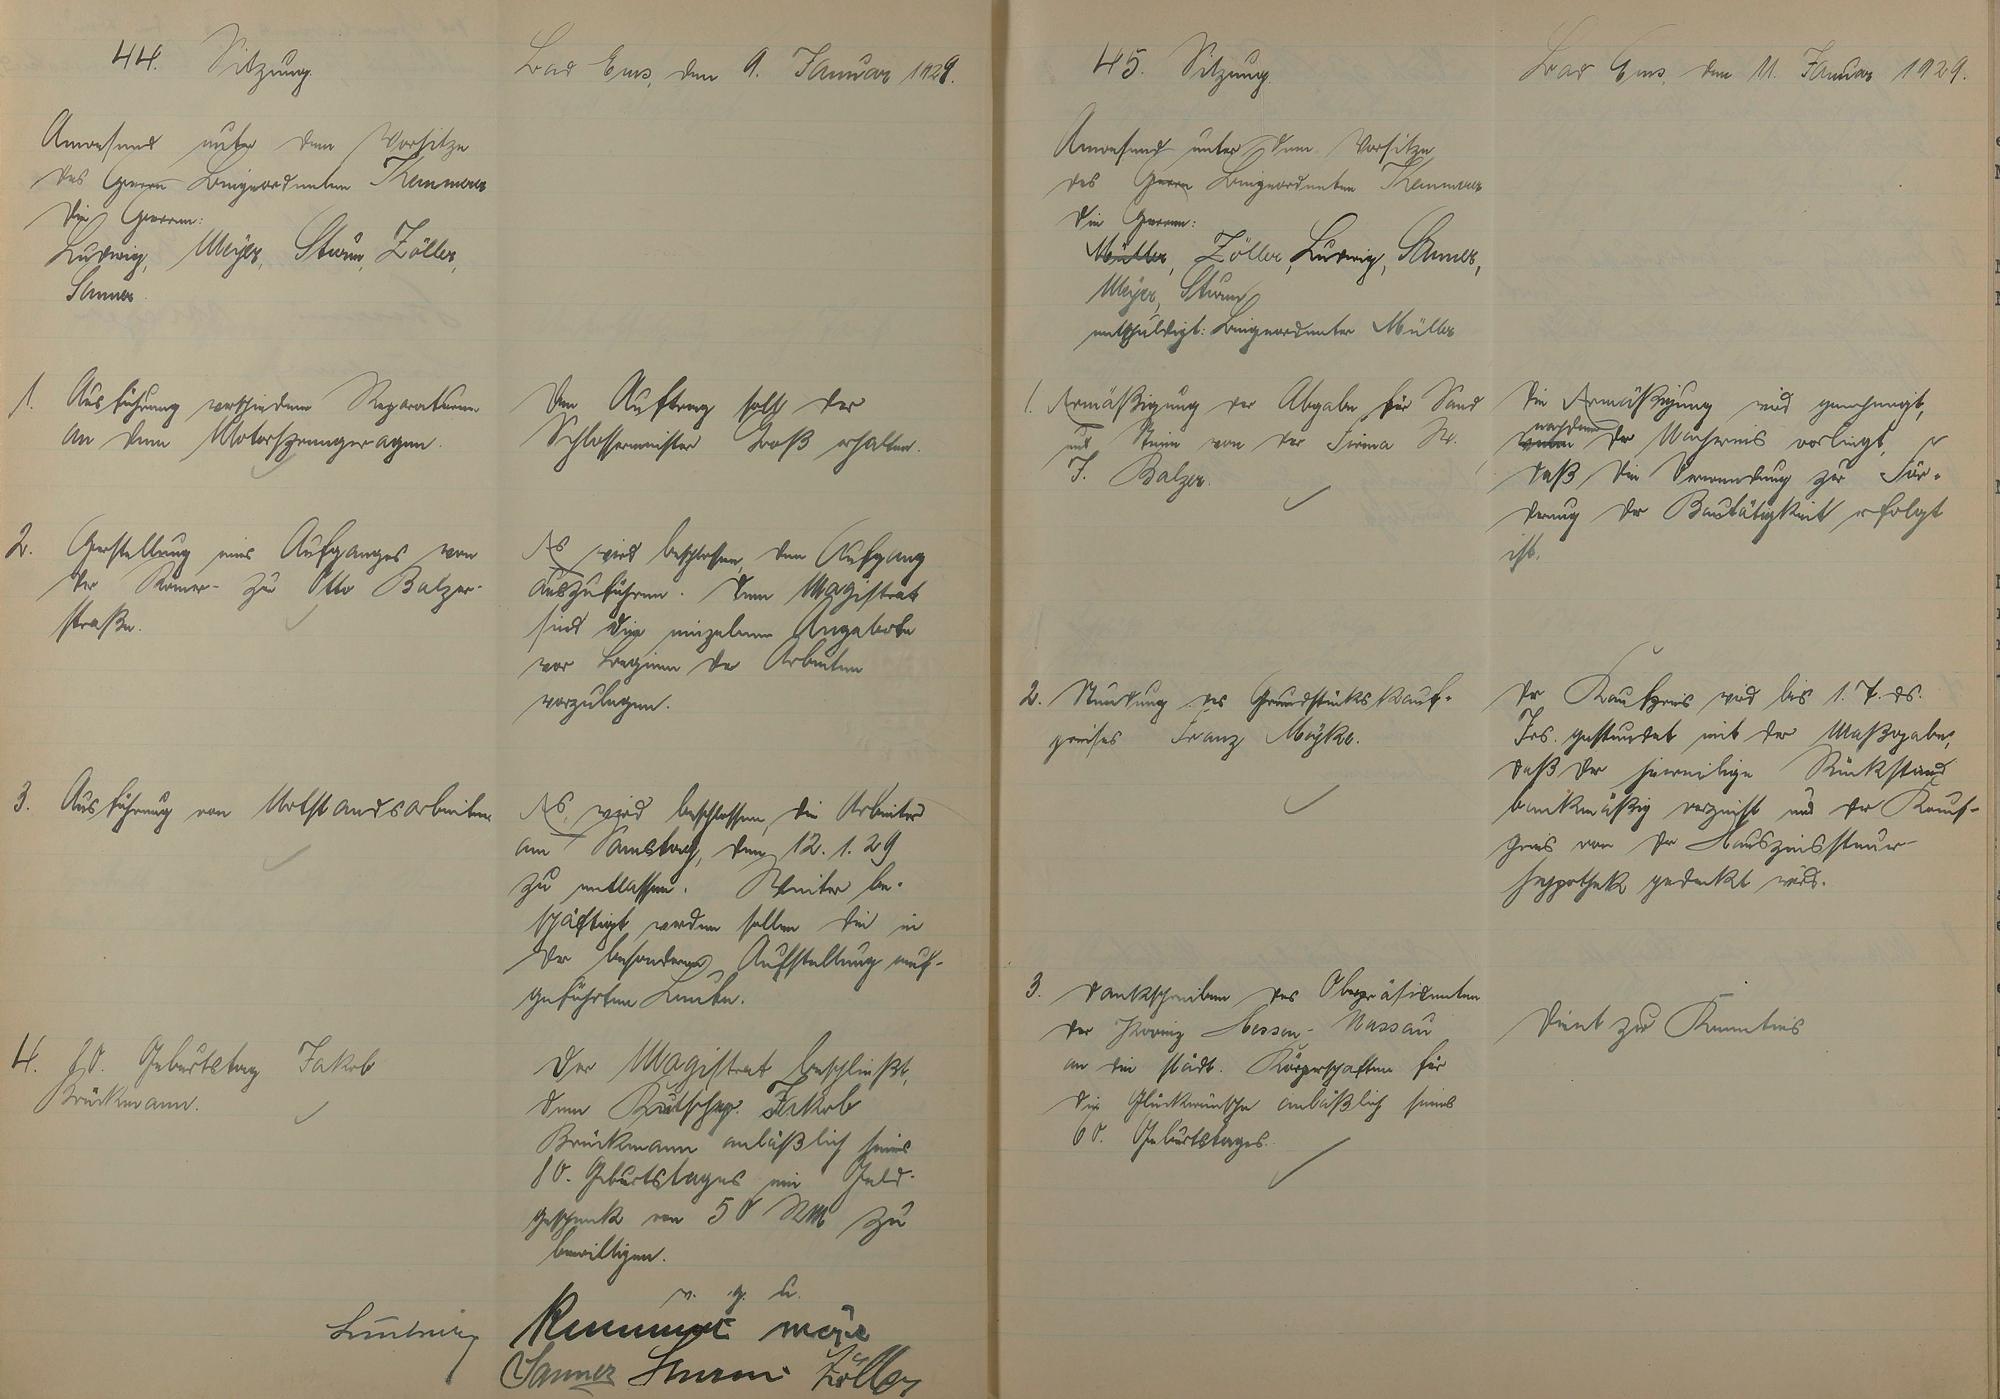 44. Sitzung.
Bad Ems, den 9. Januar 1929.
Anwesend unter dem Vorsitze
des Herrn Beigeordneten Kemmerer
die Herren:
Ludwig, Meyer, Sturm, Zöller,
Sanner.
1. Ausführung verschiedener Reparaturen
an dem Motorsprengwagen.
Den Auftrag soll der
Schlossermeister Groß erhalten.
2. Herstellung eines Aufganges von
der Römer- zur Otto Balzer-
straße.
Es wird beschlossen, den Aufgang
auszuführen. Dem Magistrat
sind die einzelnen Angebote
vor Beginn der Arbeiten
vorzulegen.
3. Ausführung von Notstandsarbeiten
Es wird beschlossen, die Arbeiter
am Samstag, den 12. 1. 29
zu entlassen. Weiter be-
schäftigt werden sollen die in
der besonderen Aufstellung auf-
geführten Leute.
4. 80. Geburtstag Jakob
Brückmann.
Der Magistrat beschließt,
dem Kutscher Jakob
Brückmann anläßlich seines
80. Geburtstages ein Geld-
geschenk von 50 RM zu
bewilligen.
v. g. u.
Ludwig Kemmerer Meyer
Sanner Sturm Zöller
45. Sitzung.
Bad Ems, den 11. Januar 1929.
Anwesend unter dem Vorsitze
des Herrn Beigeordneten Kemmerer
die Herren:
Müller, Zöller, Ludwig, Sanner,
Meyer, Sturm
entschuldigt: Beigeordneter Müller
1. Ermäßigung der Abgabe für Sand
und Steine von der Firma W.
J. Balzer.
Die Ermäßigung wird genehmigt,
nachdem
der Nachweis vorliegt,
daß die Verwendung zur För-
derung der Bautätigkeit erfolgt
ist.
2. Stundung des Grundstückskauf-
preises Franz
Der Kaufpreis wird bis 1. 7. ds.
Jrs. gestundet mit der Maßgabe,
daß der jeweilige Rückstand
bankmäßig verzinst und der Kauf-
preis von der Hauszinssteuer-
hypothek gedeckt wird.
3. Dankschreiben des Oberpräsidenten
der Provinz Hessen-Nassau
an die städt. Körperschaften für
die Glückwünsche anläßlich seines
60. Geburtstages.
Dient zur Kenntnis